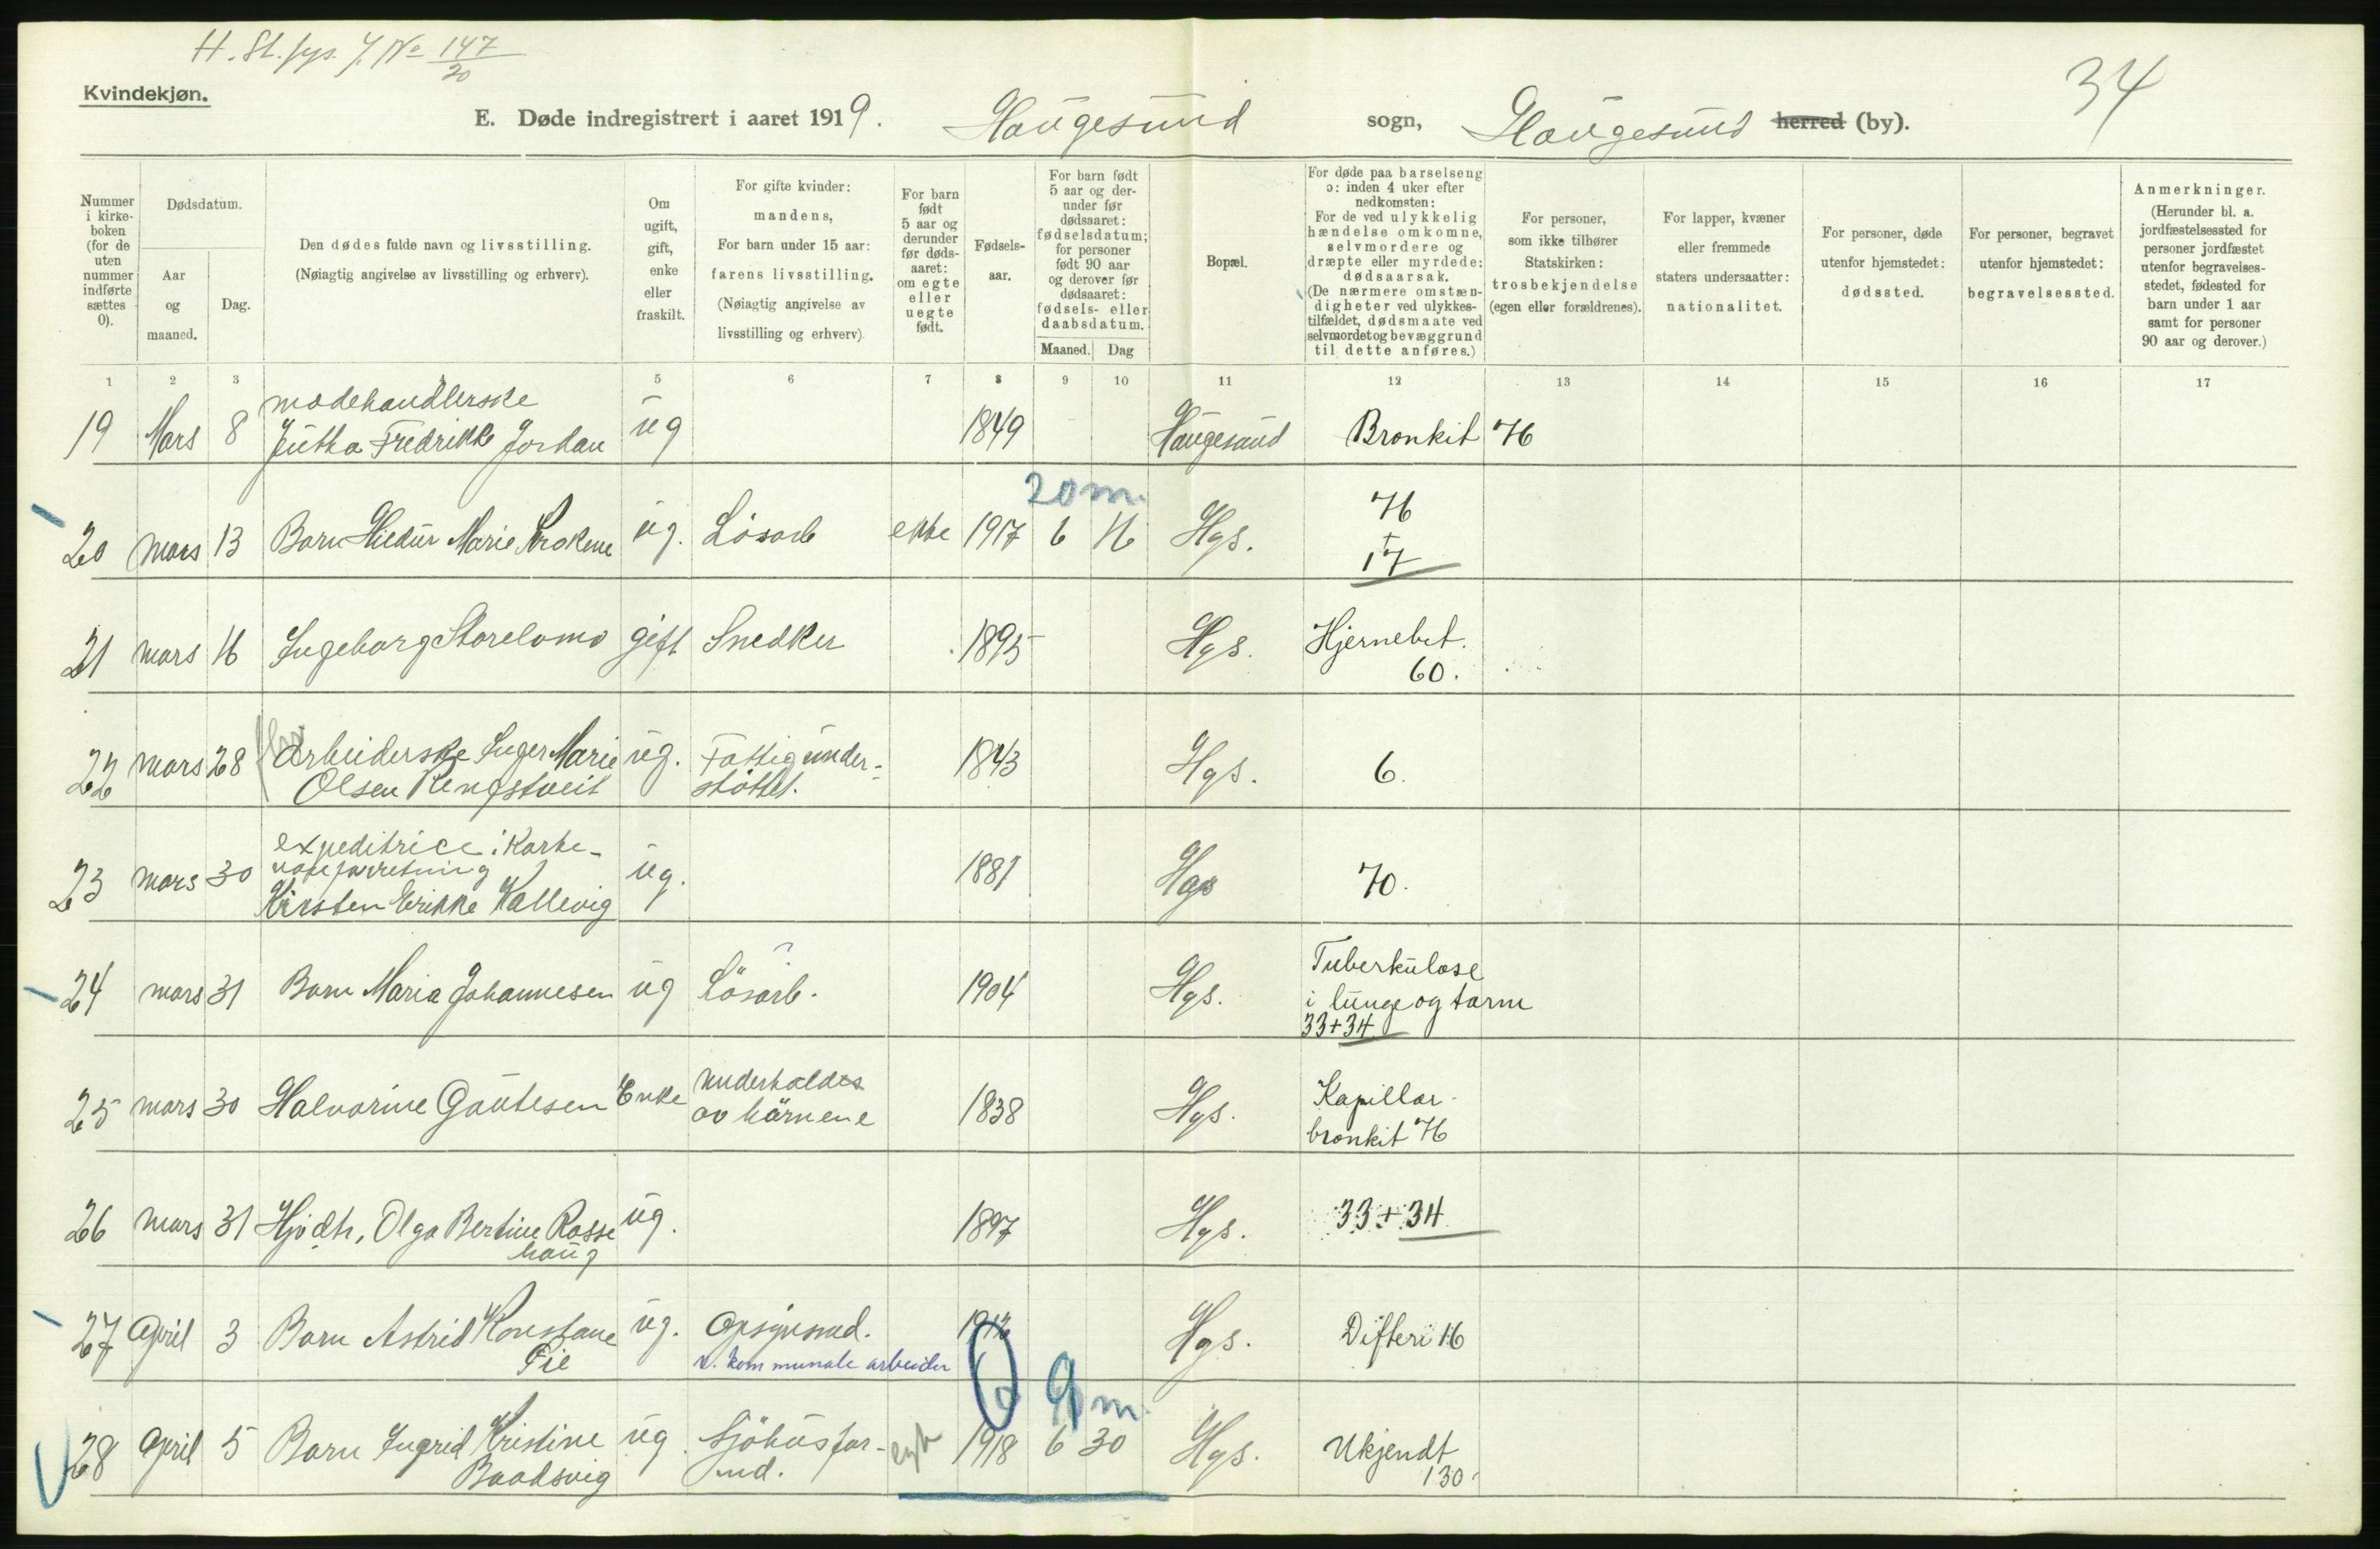 H. St. fys. J. No 147/20
34
Kvindekjøn.
E. Døde indregistrert i aaret 1919. Haugesund sogn, Haugesund herred (by).
Nummer i kirkeboken (for de uten nummer indførte sættes 0).
Dødsdatum.
Aar og maaned.
Dag.
Den dødes fulde navn og livsstilling.
(Nøiagtig angivelse av livsstilling og erhverv).
Om ugift, gift, enke eller fraskilt.
For gifte kvinder: mandens,
For barn under 15 aar: farens livsstilling.
(Nøiagtig angivelse av livsstilling og erhverv)
For barn født 5 aar og derunder før dødsaaret: om egte eller uegte født.
Fødselsaar.
For barn født 5 aar og derunder før dødsaaret: fødselsdatum; for personer født 90 aar og derover før dødsaaret: fødsels- eller daabsdatum.
Maaned. Dag
Bopæl.
For døde paa barselseng ɔ: inden 4 uker efter nedkomsten:
For de ved ulykkelig hændelse omkomne, selvmordere og dræpte eller myrdede: dødsaarsak.
(De nærmere omstændigheter ved ulykkestilfældet, dødsmaate ved selvmordet og bevæggrund til dette anføres.)
For personer, som ikke tilhører Statskirken: trosbekjendelse (egen eller forældrenes).
For lapper, kvæner eller fremmede staters undersaatter: nationalitet.
For personer, døde utenfor hjemstedet: dødssted.
For personer, begravet utenfor hjemstedet: begravelsessted.
Anmerkninger.
(Herunder bl. a. jordfæstelsessted for personer jordfæstet utenfor begravelsesstedet, fødested for barn under 1 aar samt for personer 90 aar og derover.)
1 2 3 5 6 7 8 9 10 11 12 13 14 15 16 17
modehandlerske
19 Mars 8 Jutta Fredrikke Jordan ug 1849 Haugesund Bronkit 76
20 m.
20 mars 13 Barn Hildur Marie Krokene ug. Lösarb ekte 1917 6 16 Hgs. 76
+
17
21 mars 16 Ingeborg Storelomo gift Snedker 1895 Hgs. Hjernebet.
60.
22 mars 28 Arbeiderske Inger Marie ug. Fattigunder- 1843 Hgs. 6.
Olsen Rengstveit støttet.
expeditrice i korte-
vareforretning
23 mars 30 Kirsten Erikke Kallevig ug. 1881 Hgs 70.
24 mars 31 Barn Maria Johannesen ug Lösarb. 1904 Hgs. Tuberkulose
i lunge og tarm
33+34
25 mars 30 Halvorine Gautesen Enke underholdes 1838 Hgs. Kapillar-
av börnene bronkit 76
26 mars 31 Hjv dtr, Olga Bertine Rosse ug. 1897 Hgs. 33+34
haug
27 April 3 Barn Astrid Konstane ug. Opsynsmd. 1912 Hgs. Difteri 16
Pie v. kommunale arbeider
6 9 m.
28 April 5 Barn Ingrid Kristine ug. Sjöhusfor- egte 1918 6 30 Hgs. Ukjendt
Baadsvig md. 130.